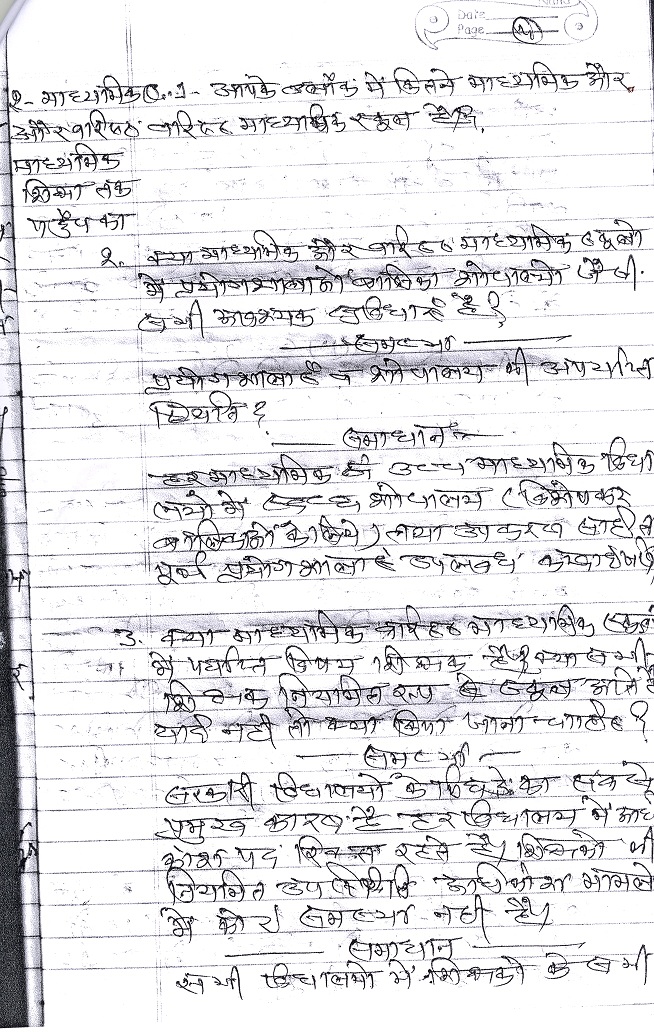 Date
Page
२- माध्यमिक Q.1- आपके ब्लॉक में कितने माध्यमिक और
और वरिष्ठ वरिष्ठ माध्यमिक स्कूल है।
माध्यमिक
शिक्षा तक
पहुँच का
२. क्या माध्यमिक और वरिष्ठ माध्यमिक स्कूलो
में प्रयोगशालाओ बालिका शौचालयो जैसी
सभी आवश्यक सुविधाएं है?
समस्या
प्रयोगशालाएं व शौचालय की अपर्याप्त
स्थिति?
समाधान
हर माध्यमिक व उच्च माध्यमिक विद्या
लयों में शौचालय (विशेषकर
बालिकाओं के लिये) तथा उपकरण सहित
पूर्ण प्रयोगशालाएं उपलब्ध
3. क्या माध्यमिक वरिष्ठ माध्यमिक स्कूलो
में पर्याप्त विषय शिक्षक है? क्या सभी
शिक्षक नियमित रूप से स्कूल आते है
यदि नही तो क्या किया जाना चाहिए?
समस्या
सरकारी विद्यालयों के का सबसे
प्रमुख कारण है हर विद्यालय में आधे
पद रिक्त रहते है। शिक्षको की
नियमित उपस्थिति अधिकांश मामले
में कोई समस्या नही है।
समाधान
सभी विद्यालयो में शिक्षको के सभी